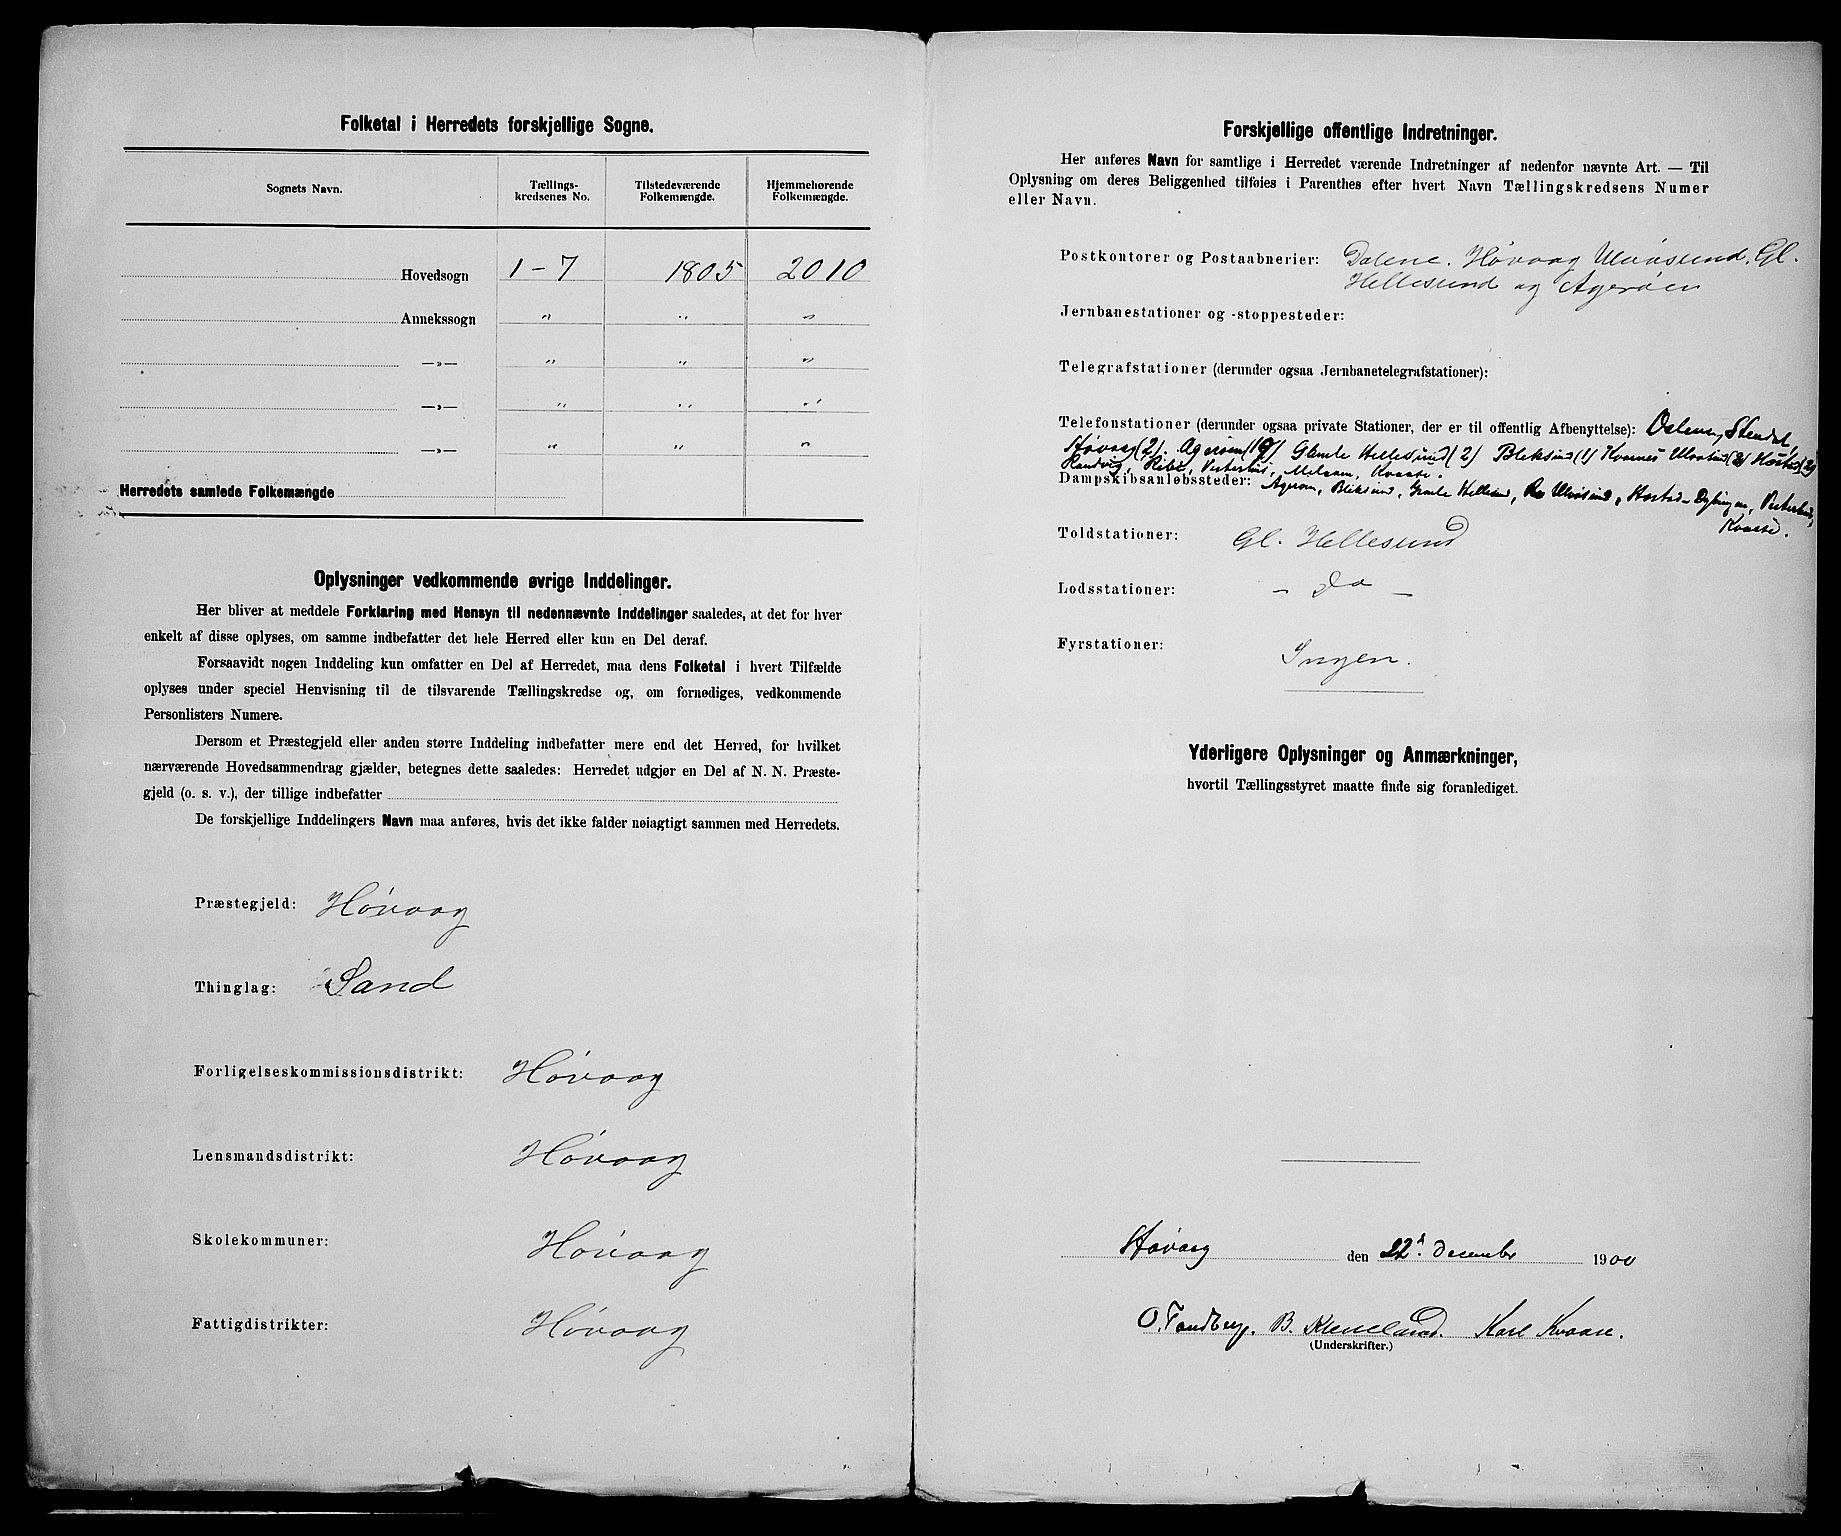 Folketal i Herredets forskjellige Sogne.
Sognets Navn. Tællings-kredsenes No. Tilstedeværende Folkemængde. Hjemmehørende Folkemængde.
Hovedsogn 1-7 1805 2010
Annekssogn " " "
—»— " " "
—»— " " "
—»— " " "
Herredets samlede Folkemængde
Oplysninger vedkommende øvrige Inddelinger.
Her bliver at meddele Forklaring med Hensyn til nedennævnte Inddelinger saaledes, at det for hver
enkelt af disse oplyses, om samme indbefatter det hele Herred eller kun en Del deraf.
Forsaavidt nogen Inddeling kun omfatter en Del af Herredet, maa dens Folketal i hvert Tilfælde
oplyses under speciel Henvisning til de tilsvarende Tællingskredse og, om fornødiges, vedkommende
Personlisters Numere.
Dersom et Præstegjeld eller anden større Inddeling indbefatter mere end det Herred, for hvilket
nærværende Hovedsammendrag gjælder, betegnes dette saaledes: Herredet udgjør en Del af N. N. Præste-
gjeld (o. s. v.), der tillige indbefatter
De forskjellige Inddelingers Navn maa anføres, hvis det ikke falder nøiagtigt sammen med Herredets.
Præstegjeld: Høvaag
Thinglag: Sand
Forligelseskommissionsdistrikt: Høvaag
Lensmandsdistrikt: Høvaag
Skolekommuner: Høvaag
Fattigdistrikter: Høvaag
Forskjellige offentlige Indretninger.
Her anføres Navn for samtlige i Herredet værende Indretninger af nedenfor nævnte Art. — Til
Oplysning om deres Beliggenhed tilføies i Parenthes efter hvert Navn Tællingskredsens Numer
eller Navn.
Postkontorer og Postaabnerier: Dalene. Høvaag Ulvøsund. Gl.
Hellesund og Agerøen
Jernbanestationer og -stoppesteder:
Telegrafstationer (derunder ogsaa Jernbanetelegrafstationer):
Telefonstationer (derunder ogsaa private Stationer, der er til offentlig Afbenyttelse): Dalene, Stendal,
Høvaag (2). Agerøen Gamle Hellesund (2) Bleksund (1) Kvarnes Ulvøsund Hæstad (2)
Randvig, Ribe, Vesterhus, Kvaase.
Dampskibsanløbssteder: Agerøen, Bleksund, Gamle Hellesund, Ulvøsund, Hæstad, Dybingen, Vesterhus,
Kvaase.
Toldstationer: Gl. Hellesund
Lodsstationer: - Do -
Fyrstationer: Ingen.
Yderligere Oplysninger og Anmærkninger,
hvortil Tællingsstyret maatte finde sig foranlediget.
Høvaag den 22d. Decembr 1900
O. Tandberg. B. Klevelund. Karl Kvaase.
(Underskrifter.)